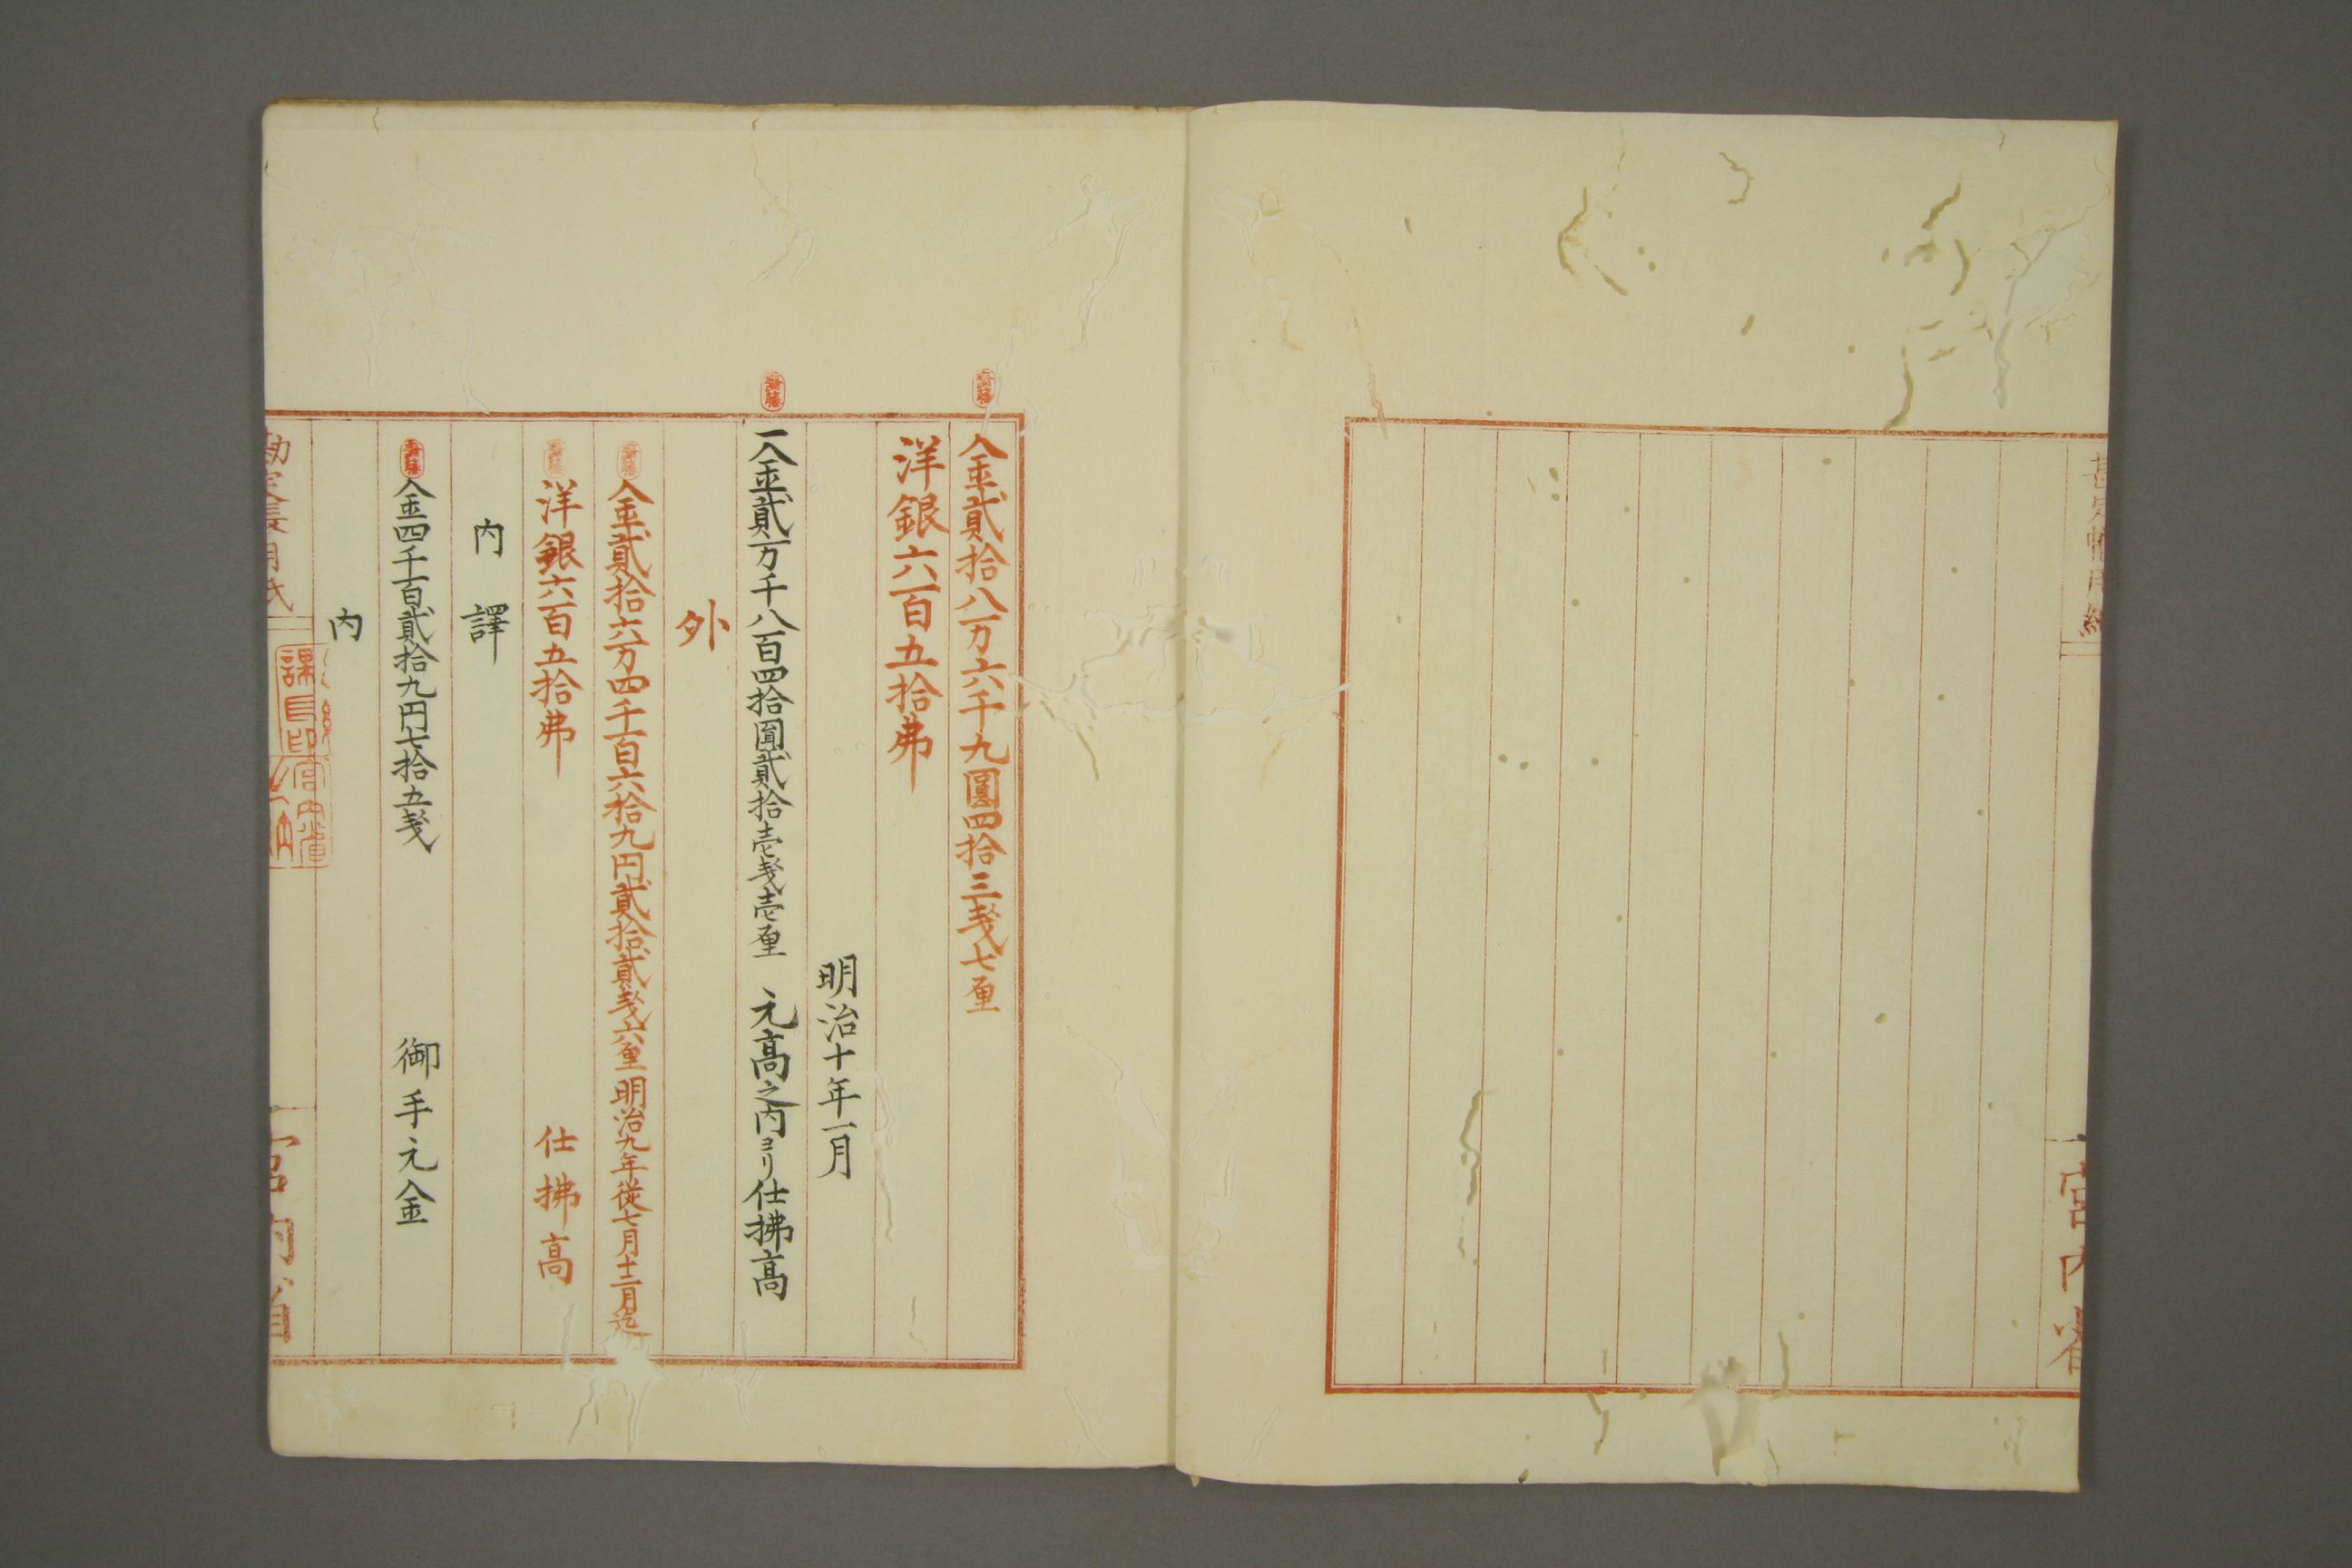 宮内省
金貮拾八万六千九圓四拾三戔七厘
洋銀六百五拾弗
明治十年一月
一金貮万千八百四拾圓貮拾壱戔壱厘 元高之内ヨリ仕拂高
外
金貮拾六万四千百六拾九円貮拾貮戔六厘 明治九年従七月十二月迄
洋銀六百五拾弗 仕拂高
内譯
金四千百貮拾九円七拾五戔 御手元金
内
宮内省